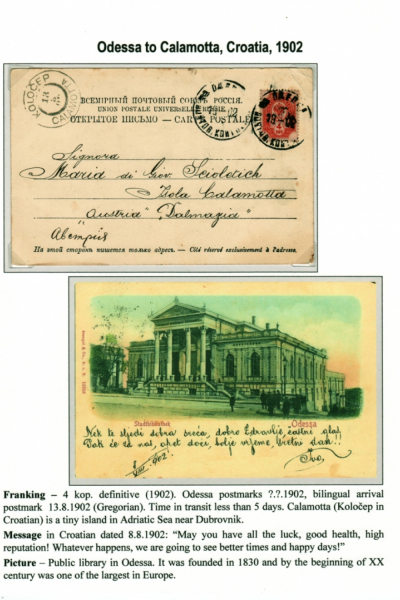 Odessa to Calamotta, Croatia, 1902
KOLOČEP
13
ВСЕМІРНЫЙ ПОЧТОВЫЙ СОЮЗЪ. РОССІЯ.
UNION POSTALE UNIVERSELLE. RUSSIE.
ОТКРЫТОЕ ПИСЬМО — CARTE POSTALE
Signora
Maria di Giov. Scioletich
Isola Calamotta
"Austria" "Dalmazia"
Австрия
На этой сторонѣ пишется только адресъ. — Côté réservé exclusivement à l'adresse.
Stadtbibliothek
Odessa
Nek te sljedi dobra sreća, dobro Zdravlje, častni glas,
Dok će za nas, opet doći, bolje vrijeme, sretni dan!!
8/VIII. 902.
Ivo,
Franking – 4 kop. definitive (1902). Odessa postmarks ?.?.1902, bilingual arrival
postmark 13.8.1902 (Gregorian). Time in transit less than 5 days. Calamotta (Koločep in
Croatian) is a tiny island in Adriatic Sea near Dubrovnik.
Message in Croatian dated 8.8.1902: “May you have all the luck, good health, high
reputation! Whatever happens, we are going to see better times and happy days!”
Picture – Public library in Odessa. It was founded in 1830 and by the beginning of XX
century was one of the largest in Europe.